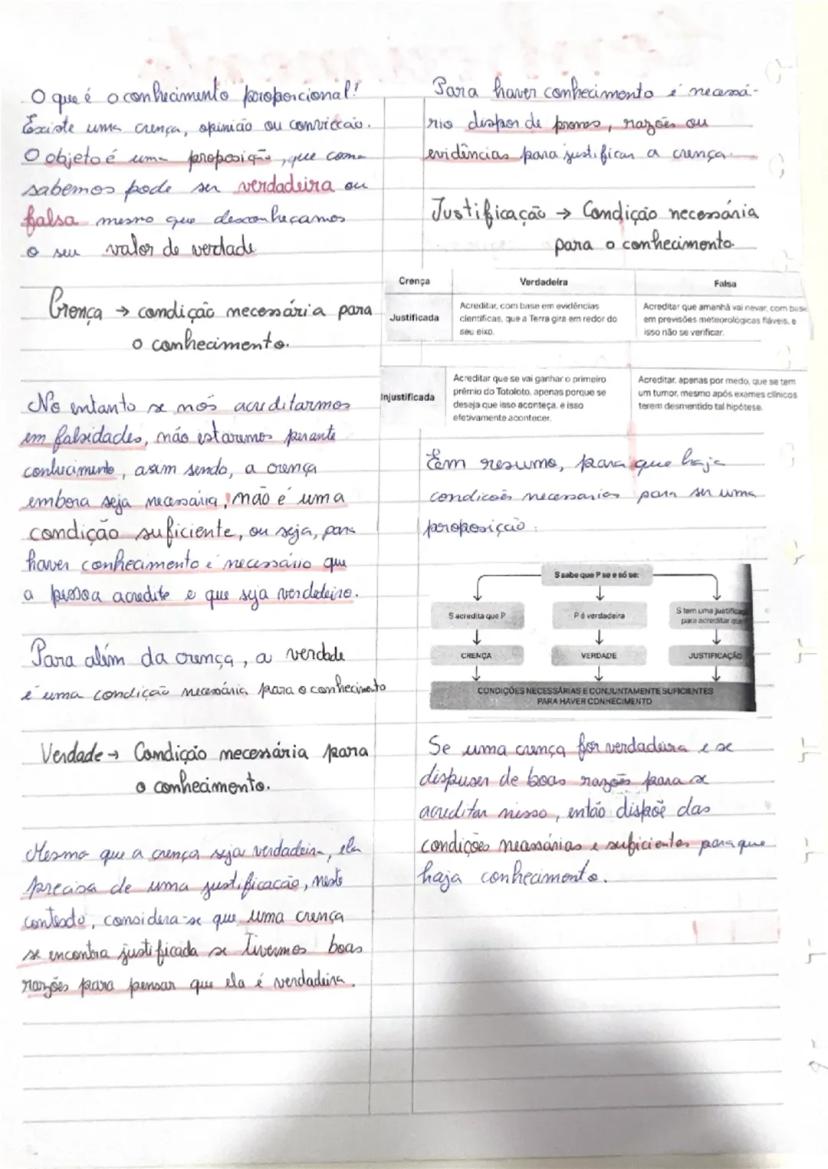 O que é o conhecimento poroporcional?
Existe uma crença, opinião ou convicção.
O objeto é uma proposição, que como
sabemos pode ser verdadeira ou
falsa mesmo que desconheçamos
o seu valor de verdade
Crença → condição necessária para
o conhecimento.
No entanto se nós acreditarmos
em falsidades, não estaremos perante
conhecimento, assim sendo, a crença
embora seja necessária, não é uma
condição suficiente, ou seja, para
haver conhecimento é necessário que
a pessoa acredite e que seja verdadeiro.
Para além da crença, a verdade
é uma condição necessária para o conhecimento
Verdade → Condição necessária para
o conhecimento.
Mesmo que a crença seja verdadeira, ela
precisa de uma justificacão, neste
contexto, considera-se que uma crença
se encontra justificada se tivermos boas
razões para pensar que ela é verdadeira.
Para haver conhecimento é necessá-
rio dispor de provas, razões ou
evidências para justificar a crença.
Justificação → Condição necessária
para o conhecimento
Crença Verdadeira Falsa
Justificada
Acreditar, com base em evidências
científicas, que a Terra gira em redor do
seu eixo.
Acreditar que amanhã vai nevar, com base
em previsões meteorológicas fiáveis, e
isso não se verificar.
Injustificada
Acreditar que se vai ganhar o primeiro
prémio do Totoloto, apenas porque se
deseja que isso aconteça, e isso
efetivamente acontecer.
Acreditar, apenas por medo, que se tem
um tumor, mesmo após exames clínicos
terem desmentido tal hipótese.
Em resumo, para que haja
condicoēs necessarias para ser uma
poroposição:
S sabe que P se e só se:
S acredita que P
P é verdadeira
S tem uma justificaç
para acreditar que
CRENÇA
VERDADE
JUSTIFICAÇÃO
CONDIÇÕES NECESSÁRIAS E CONJUNTAMENTE SUFICIENTES
PARA HAVER CONHECIMENTO
Se uma crença for verdadeira e se
dispuser de boas razões para se
acreditar nisso, então dispõe das
condições necessárias e suficientes para que
haja conhecimento.